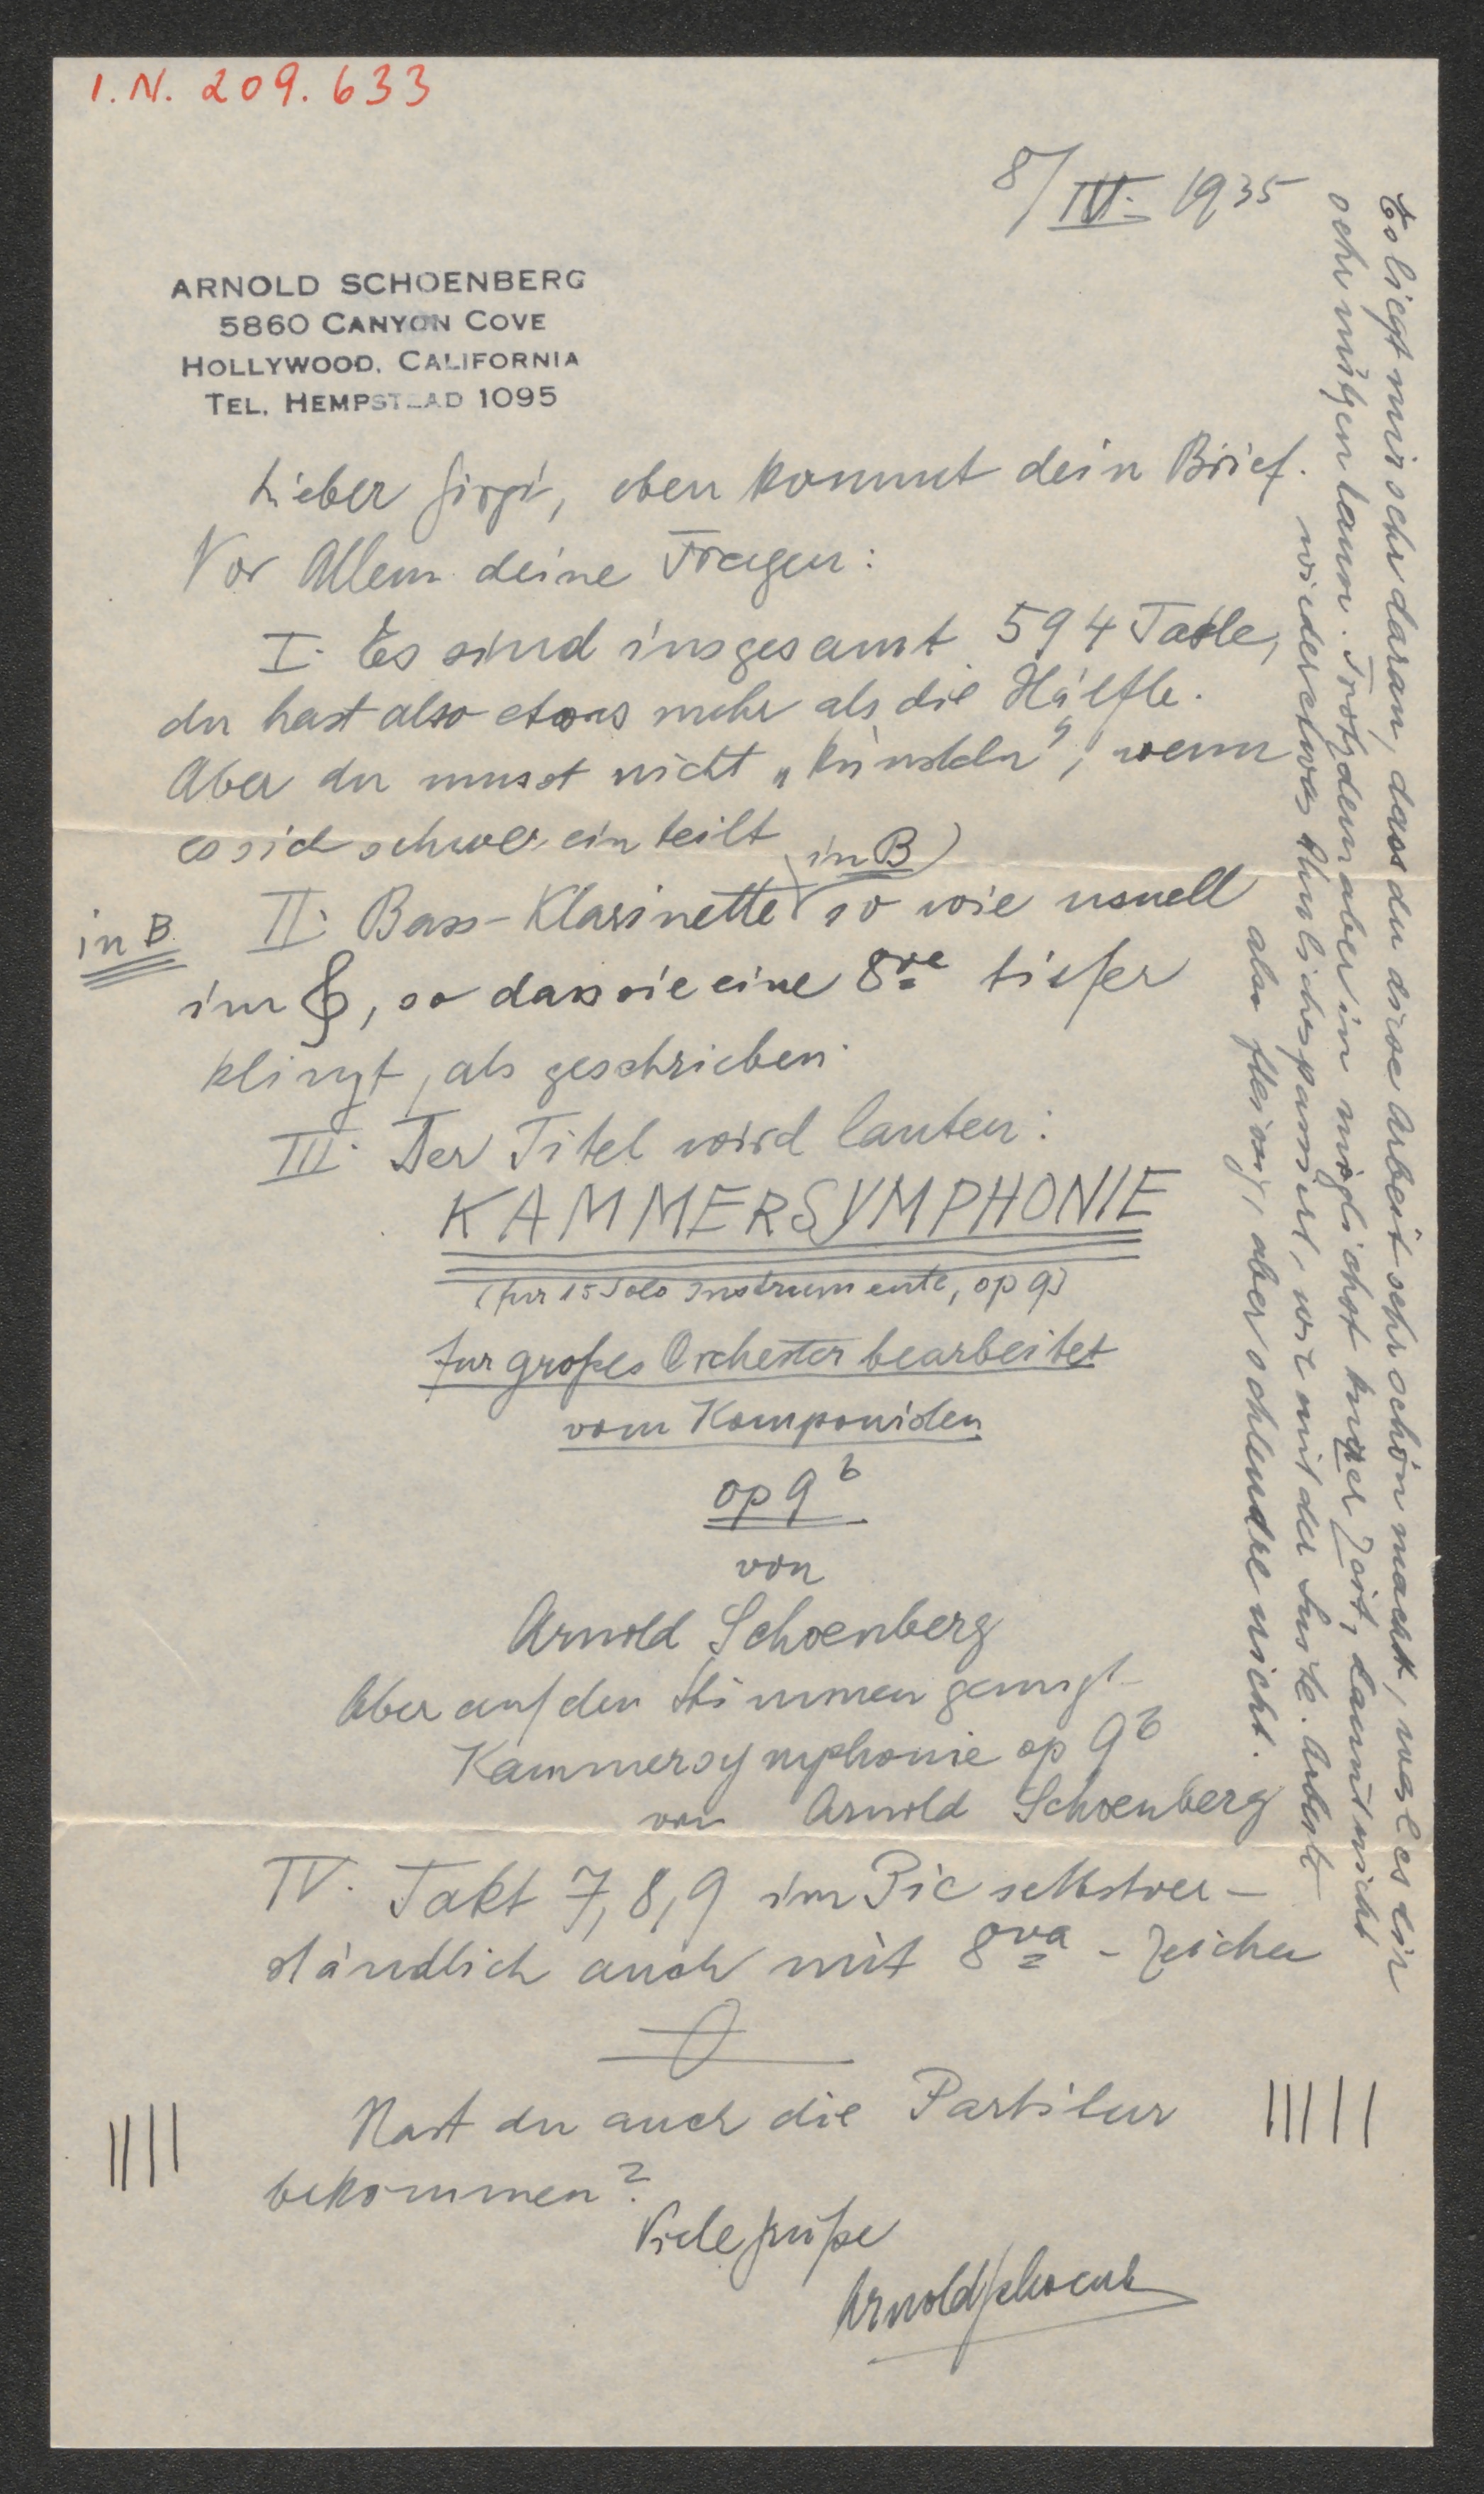 I.N. 209.633
8/IV. 1935
ARNOLD SCHOENBERG
5860 CANYON COVE
HOLLYWOOD, CALIFORNIA
TEL. HEMPSTEAD 1095
Lieber Görgi, eben kommt dein Brief.
Vor Allem deine Fragen:
I. Es sind insgesamt 594 Takte,
du hast also etwas mehr als die Hälfte.
Aber du musst nicht „künsteln", wenn
es sich schwer einteilt
in B
II. Bass-Klarinette (in B) so wie usuell
im 𝄞, so dass sie eine 8ve tiefer
klingt, als geschrieben.
III. Der Titel wird lauten:
KAMMERSYMPHONIE
(für 15 Solo Instrumente, op 9)
für großes Orchester bearbeitet
vom Komponisten
op 9b
von
Arnold Schoenberg
Aber auf den Stimmen genügt
Kammersymphonie op 9b
von Arnold Schoenberg
IV. Takt 7, 8, 9 im Pic selbstver-
ständlich auch mit 8va - Zeichen
Hast du auch die Partitur
bekommen?
Viele Grüße
Arnold Schoenb
Es liegt mir sehr daran, dass du diese Arbeit sehr schön machst, weil es dir
sehr nützen kann. Trotzdem aber in möglichst kurzer Zeit, damit nicht
wieder etwas Ähnliches passiert, wie mit der Suite. Arbeite
also fleissig, aber schleudre nicht.